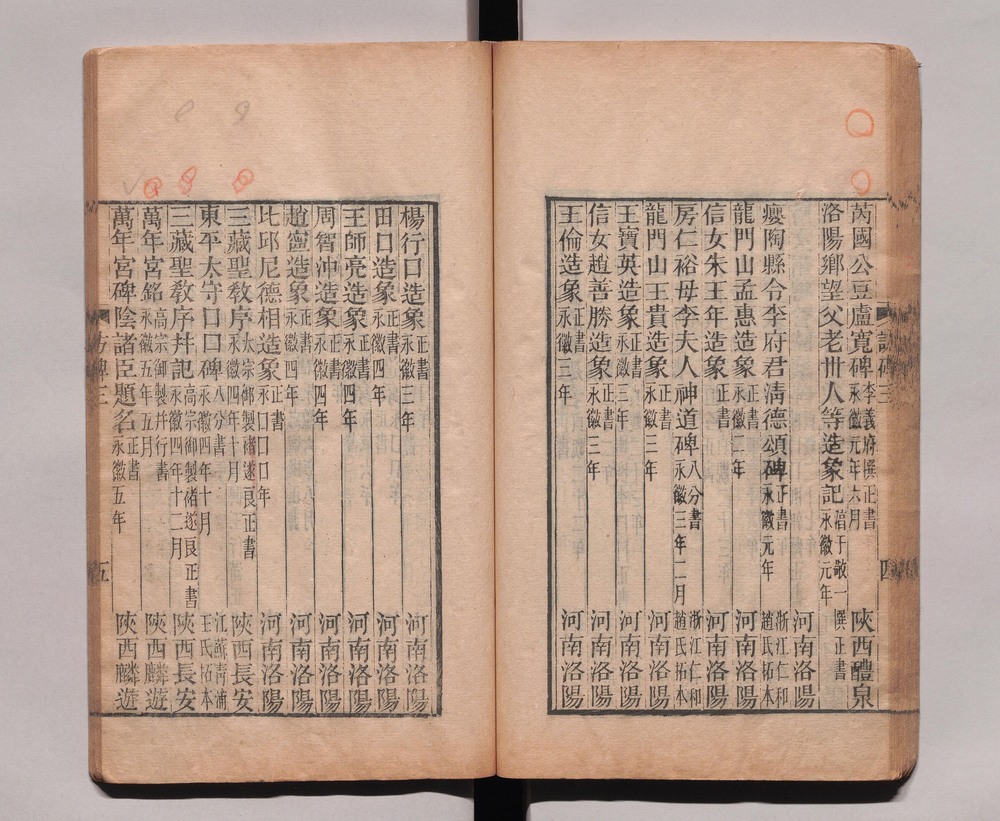 芮國公豆盧寬碑 李義府撰正書 永徽元年六月 陝西醴泉
洛陽鄉望父老卅人等造象記 𣴑于敬一撰正書 永徽元年
河南洛陽
癭陶縣令李府君淸德頌碑 正書 永徽元年 浙江仁和趙氏拓本
龍門山孟惠造象 正書 永徽二年 河南洛陽
信女朱王年造象 正書 河南洛陽
房仁裕母李夫人神道碑 八分書 永徽三年二月 浙江仁和趙氏拓本
龍門山王貴造象 正書 永徽三年 河南洛陽
王寶英造象 正書 永徽三年 河南洛陽
信女趙善勝造象 正書 永徽三年 河南洛陽
王倫造象 正書 永徽三年 河南洛陽
訪碑三
四
楊行口造象 正書 永徽三年 河南洛陽
田口造象 正書 永徽四年 河南洛陽
王師亮造象 正書 永徽四年 河南洛陽
周智沖造象 正書 永徽四年 河南洛陽
趙𡩋造象 正書 永徽四年 河南洛陽
比邱尼德相造象 正書 永口口口年 河南洛陽
三藏聖敎序 太宗御製褚遂良正書 永徽四年十月 陝西長安
東平太守口口碑 八分書 永徽四年十月 江蘇靑浦王氏拓本
三藏聖敎序幷記 高宗御製褚遂良正書 永徽四年十二月 陝西長安
萬年宮銘 高宗御製幷行書 永徽五年五月 陝西麟遊
萬年宮碑陰諸臣題名 正書 永徽五年 陝西麟遊
訪碑三
五